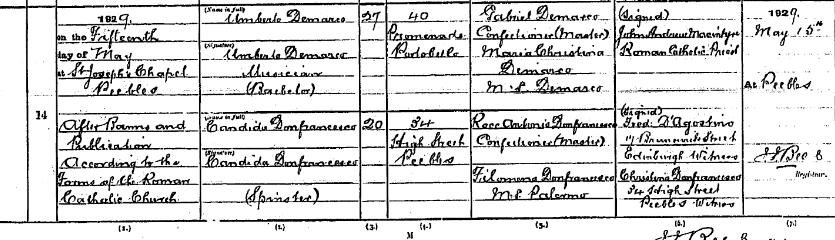 1929.
on the Fifteenth
day of May
at St Joseph's Chapel
Peebles
After Banns and
Publication
According to the
Forms of the Roman
Catholic Church
(1.)
14
(Name in full)
Umberto Demarco
(Signature)
Umberto Demarco
Musician
(Bachelor)
(Name in full)
Candida Donfrancesco
(Signature)
Candida Donfrancesco
(Spinster)
(2.)
27
20
(3.)
40
Promenade
Portobello
34
High Street
Peebles
(4.)
M
Gabriel Demarco
Confectioner (Master)
Maria Christina
Demarco
M.S. Demarco
Rocc Antonio Donfrancesco
Confectioner (Master)
Filomena Donfrancesco
M.S. Palermo
(5.)
(Signed)
John Andrew Macintyre
Roman Catholic Priest
(Signed)
Fred. D'Agostino
17 Brunswick Street
Edinburgh Witness
Christina Donfrancesco
34 High Street
Peebles Witness
(6.)
1929.
May 15th
At Peebles
Registrar.
(7.)